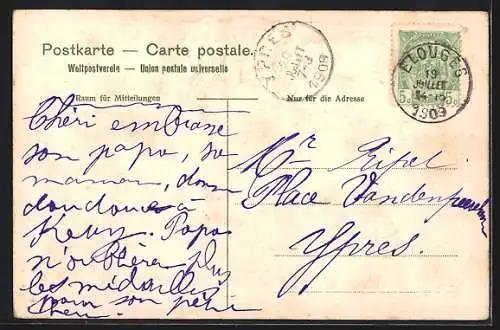 Postkarte — Carte postale.
Weltpostverein — Union postale universelle
Raum für Mitteilungen
Nur für die Adresse
YPRES
JUILLET
7-8
1909
ELOUGES
19
JUILLET
1909
5 5
Chéri embrasse
son papa, sa
maman,
doudou à
Papa
n'oubliera plus
les médailles
pour son petit
Chéri.
Mr
Place Vandenpeereboom
Ypres.